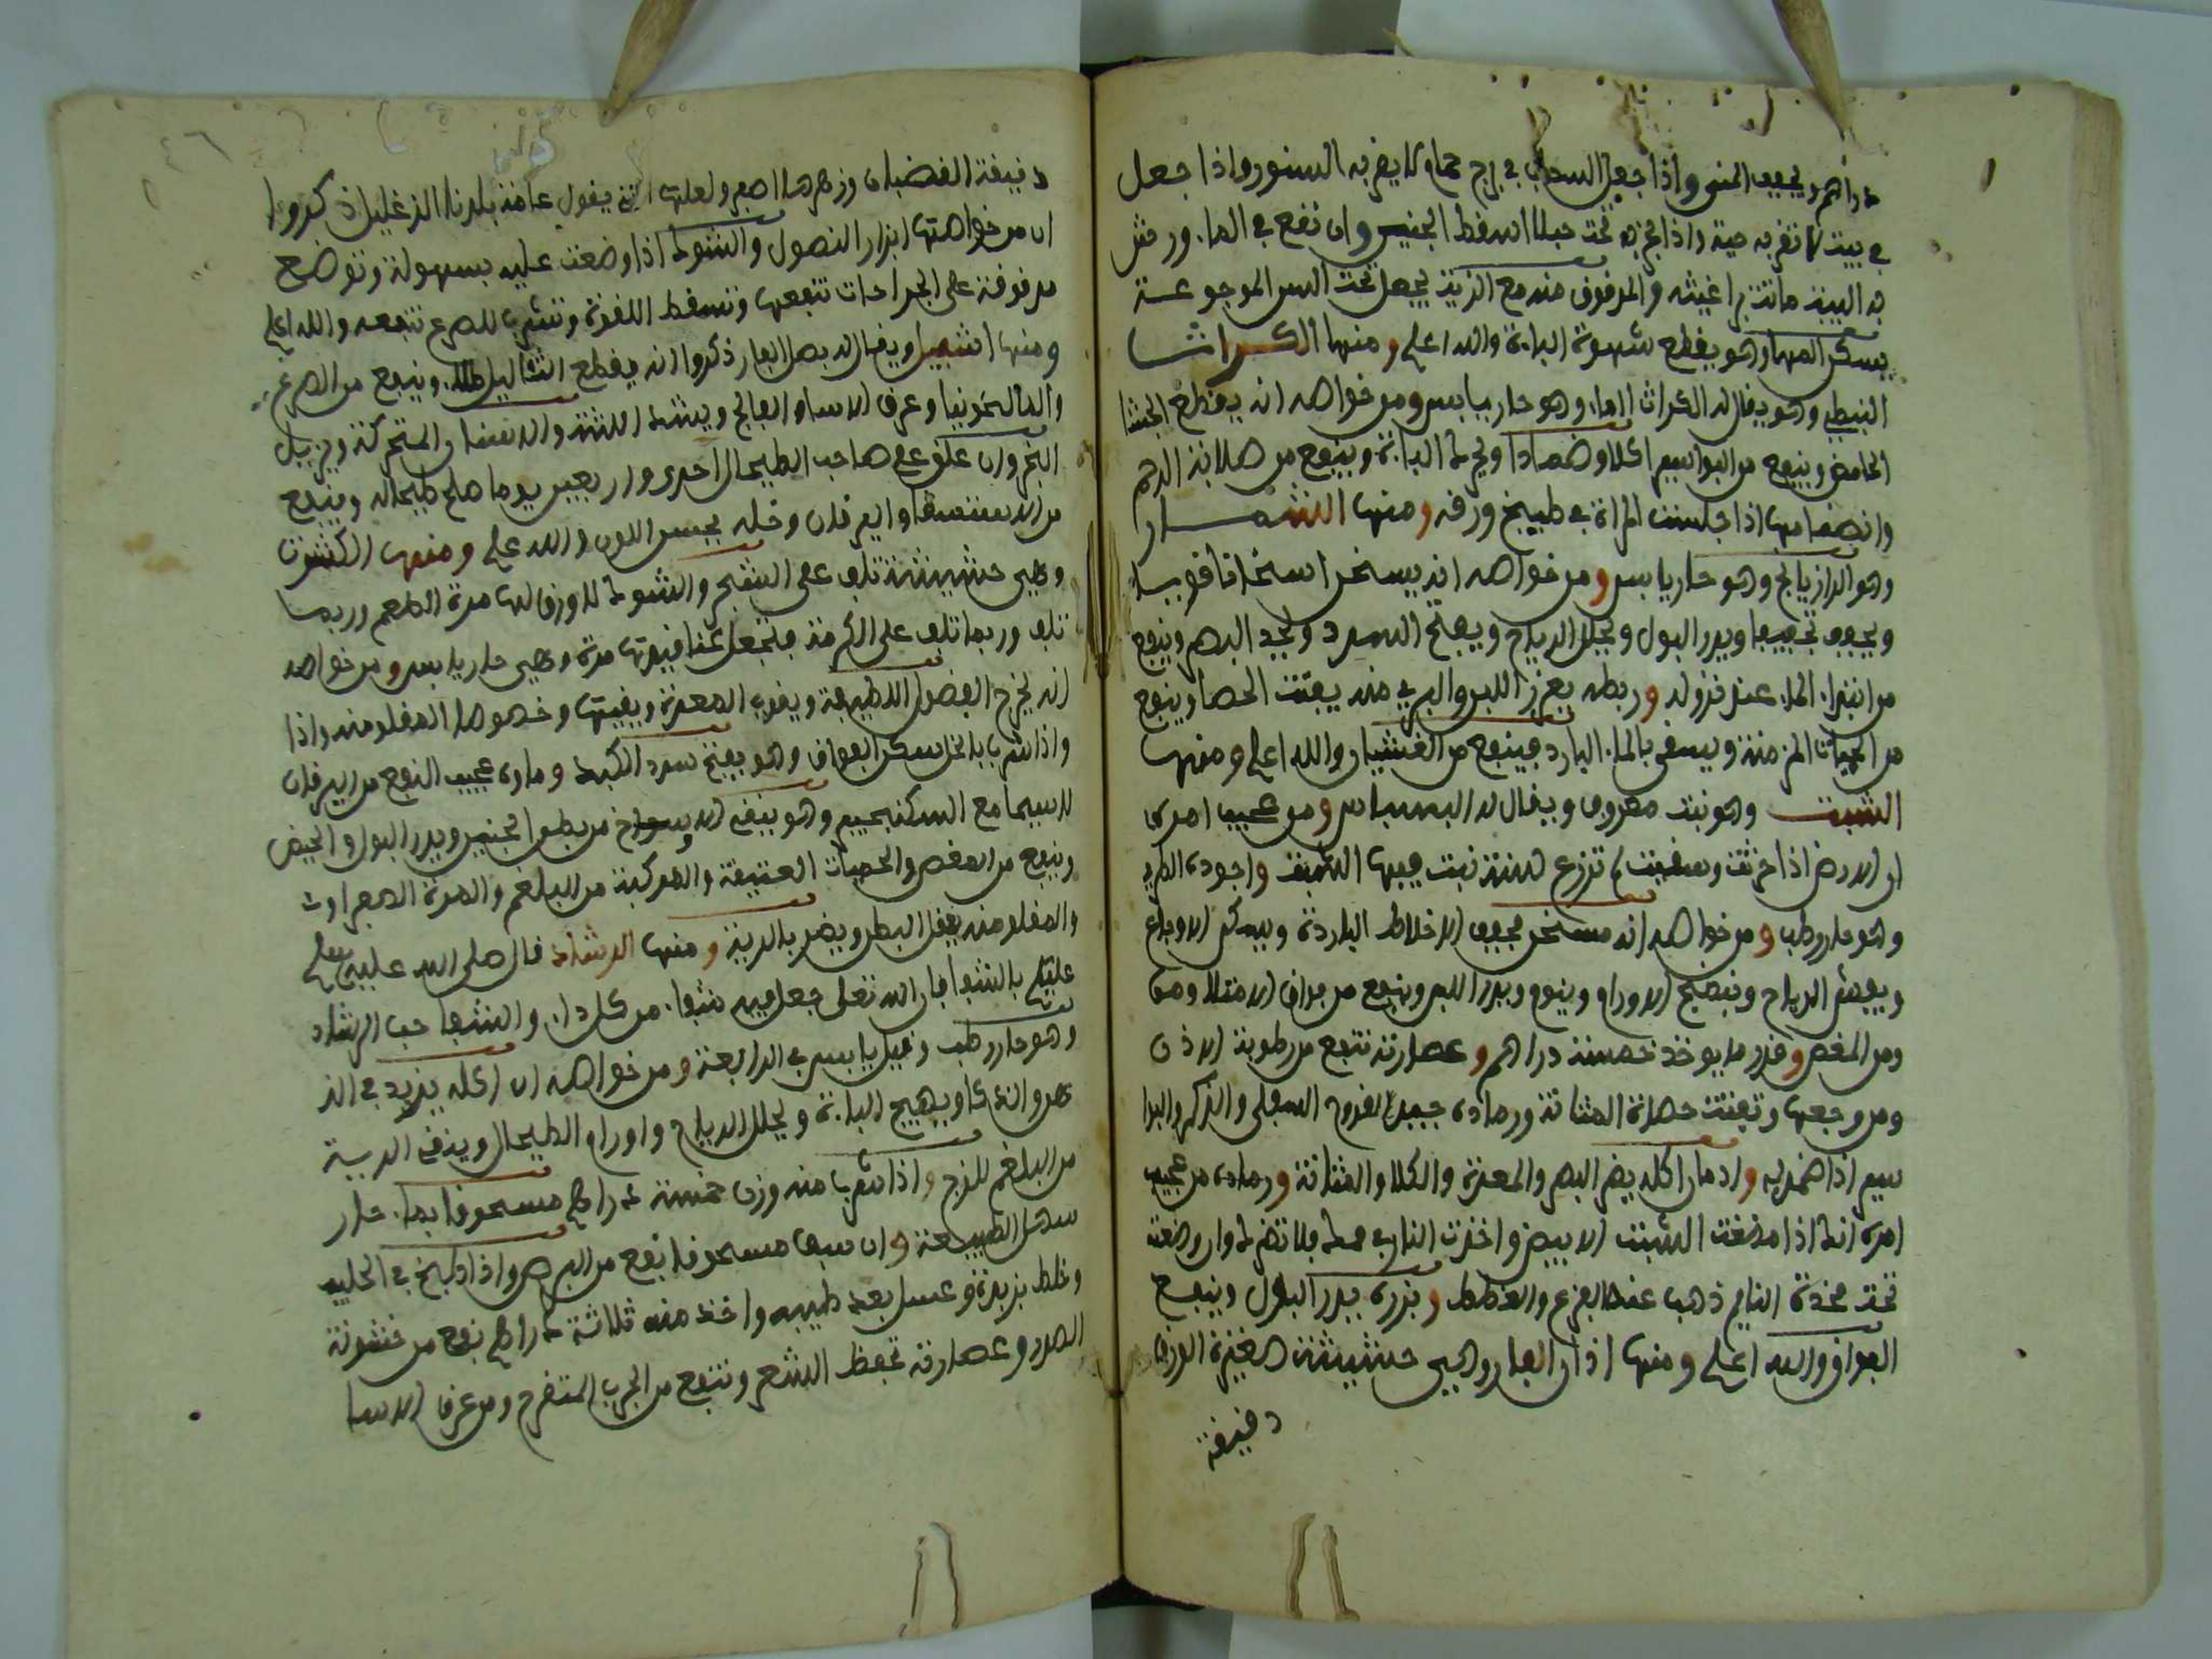 دراهم ويجفف المني واذا جعل السداب في برج حمام لا يقربه السنور واذا جعل
في بيت لا تقربه حية واذا تحت حبلا اسقط الجنين وان نقع في الماء ورش
به البيت ماتت براغيثه والمرقوق منه مع الزيت يجعل تحت السن الموجوعة
يسكن المها وهو يقطع شهوة الباءة والله اعلم ومنها الكراث
النبطي وهو يقال له الكراث الماء وهو حار يابس ومن خواصه انه يقطع الجشا
الحامض وينفع من البواسير اكلا وضمادا ويحرك الباءة وينفع من صلابة الرحم
وانضمامها اذا جلست المراة في طبيخ ورقه ومنها الشمار
وهو الرازيانج وهو حار يابس ومن خواصه انه يسخن اسخانا قويا
ويجفف تجفيفا ويدر البول ويحلل الرياح ويفتح السدد ويحد البصر وينفع
من ابتداء الماء عند نزوله ورطبه يغزر اللبن والبري منه يفتت الحصا وينفع
من الحميات المزمنة ويسقى بالماء البارد فينفع من الغثيان والله اعلم ومنها
الشبت وهو نبت معروف ويقال له البسباس ومن عجيب امره
ان الارض اذا حرثت وسقيت لم تزرع لسنة نبت فيها الشبت واجوده الطري
وهو حار رطب ومن خواصه انه مسخن مجفف الاخلاط الباردة ويسكن الاوجاع
ويفش الرياح وينضج الاورام وينوم ويدر اللبن وينفع من فواق الامتلاء وهو
ومن المغص وقدر ما يوخذ خمسة دراهم وعصارته تنفع من رطوبة الاذن
ومن وجعها وتفتت حصاة المثانة ورماده جيد لقروح السفلى والذكر والبوا
سير اذا ضمد به وادمان اكله يضر البصر والمعدة والكلا والمثانة ورماده من عجيب
امره انك اذا مضغت الشبت الابيض واخذت النار في فمك فلا تضرك وان وضعت
تحت مخدة النايم ذهب عنه الفزع والغطيط وبزره يدر البول وينفع
الفواق والله اعلم ومنها اذان الفار وهي حشيشة صغيرة الورق
دقيقة
دقيقة القضبان وزهرها اصفر ولعلها التي يقول عامة بلدنا الزغليل ذكروا
ان من خواصها ابراز النصول والشوك اذا وضعت عليه بسهولة وتوضع
مدقوقة على الجراحات تنفعها وتسقط اللقوة وتشرب للصرع تنفعه والله اعلم
ومنها اشقيل ويقال له بصل الفار ذكروا انه يقطع الثاليل طلاء وينفع من الصرع
والمالنخوليا وعرق الاسا والفالج ويشد اللثة والاسنان المتحركة ويزيل
البخر وان علق على صاحب الطحال احدى واربعين يوما صلح طحاله وينفع
من الاستسقا واليرقان وخله يحسن اللون والله اعلم ومنها الكشوت
وهي حشيشة تلف على الشجر والشوك لا ورق لها مرة الطعم وربما
تلف وربما تلف على الكرمة فتجعل عناقيدها مرة وهي حار يابس ومن خواصه
انه يخرج الفضول اللطيفة ويقوي المعدة وينقيها وخصوصا المقلو منه واذا
واذا شرب بالخل سكن الفواق وهو يفتح سدد الكبد وماوه عجيب النفع من اليرقان
لاسيما مع السكنجبين وهو ينقي الاوساخ من بطن الجنين ويدر البول والحيض
وينفع من المغص والحميات العتيقة والمركبة من البلغم والمرة الصفراوية
والمقلو منه يعقل البطن ويضر بالرية ومنها الرشاد قال صلى الله عليه وسلم
عليكم بالشفا فان الله تعلى جعل فيه شفاء من كل داء والشفا حب الرشاد
وهو حار رطب وقيل يابس في الرابعة ومن خواصه ان اكله يزيد في الذ
هن والذكا ويهيج الباءة ويحلل الرياح واورام الطحال وينقي الرية
من البلغم اللزج واذا شرب منه وزن خمسة دراهم مسحوقا بماء حار
سهل الطبيعة وان سف مسحوقا نفع من البرص واذا طبخ في الحليب
وخلط بزبدة وعسل بعد طيبه واخذ منه ثلاثة دراهم نفع من خشونة
الصدر وعصارته تحفظ الشعر وتنفع من الجرب المتقرح ومن عرق الاسا